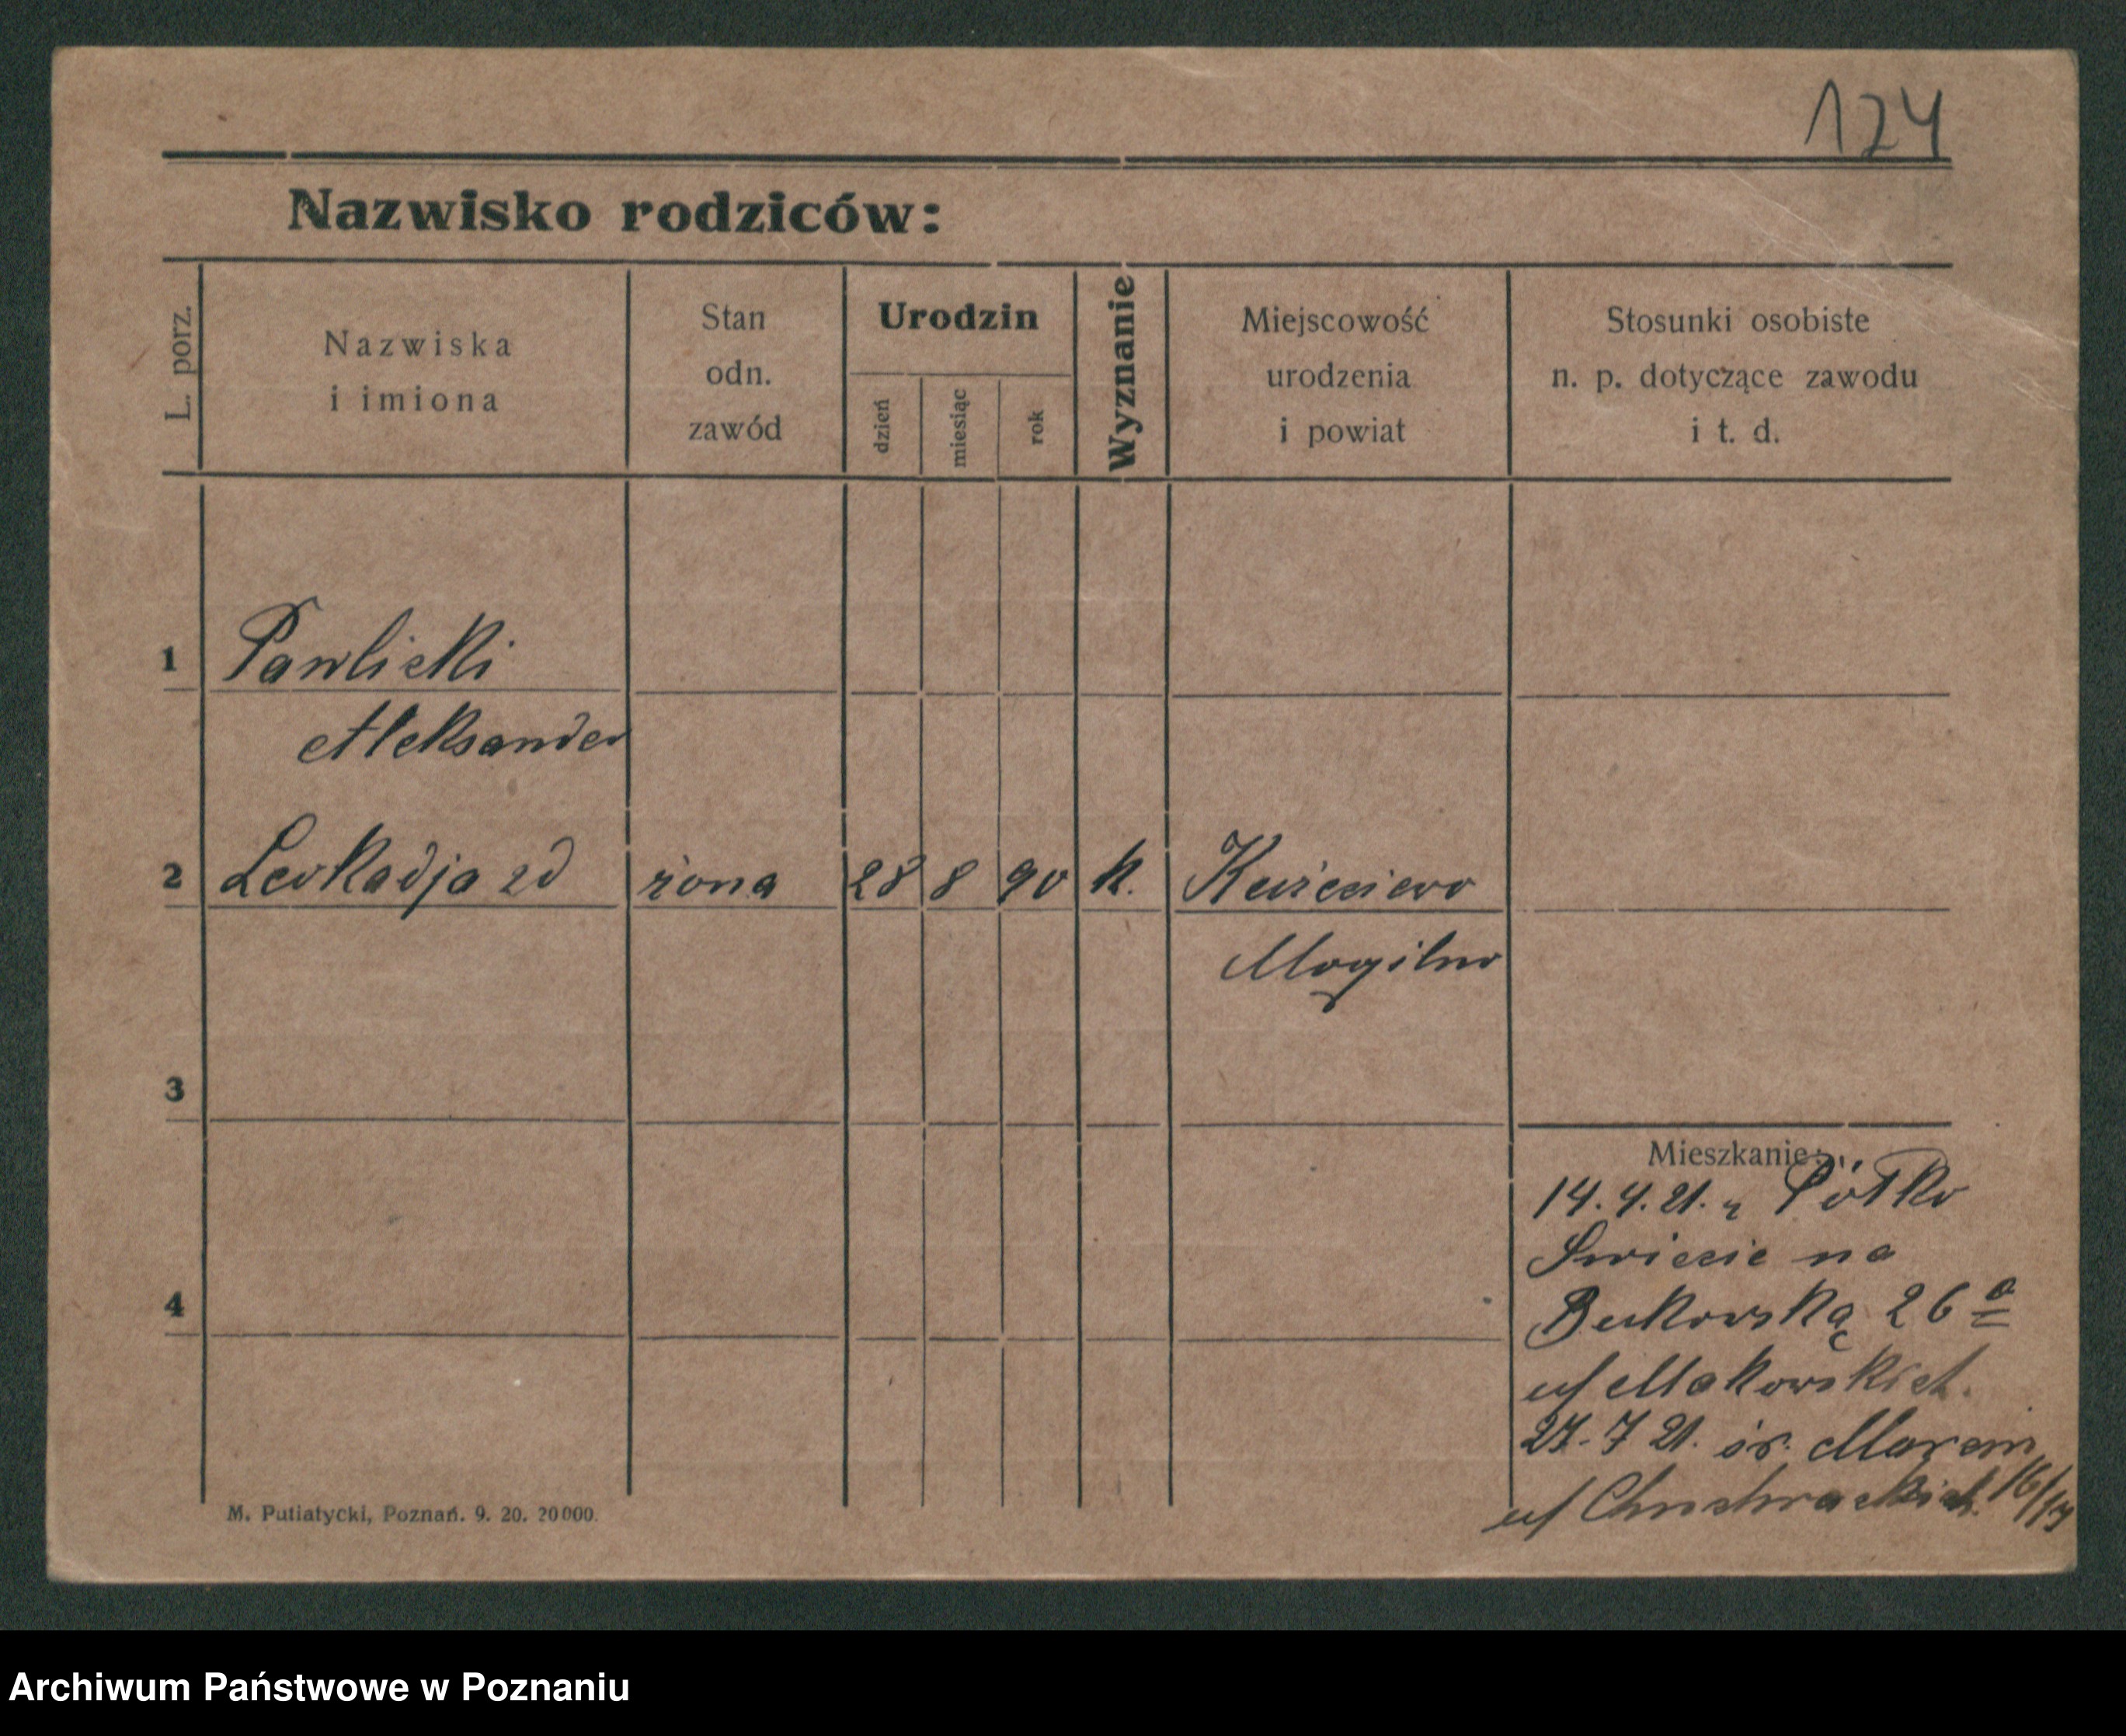 124
Nazwisko rodziców:
L. porz.
Nazwiska
i imiona
Stan
odn.
zawód
Urodzin
dzień
miesiąc
rok
Wyznanie
Miejscowość
urodzenia
i powiat
Stosunki osobiste
n. p. dotyczące zawodu
i t. d.
1 Pawlicki
Aleksander
2 Leokadja zd żona 28 8 90 k.
Mogilno
3
4
Mieszkanie:
14.4.21. z Pólko
Swiecie na
Bukowską 26 a
u/ Makowskich.
27.7 21. św. Marcin 16/17
M. Putiatycki, Poznań. 9. 20. 20000.
Archiwum Państwowe w Poznaniu